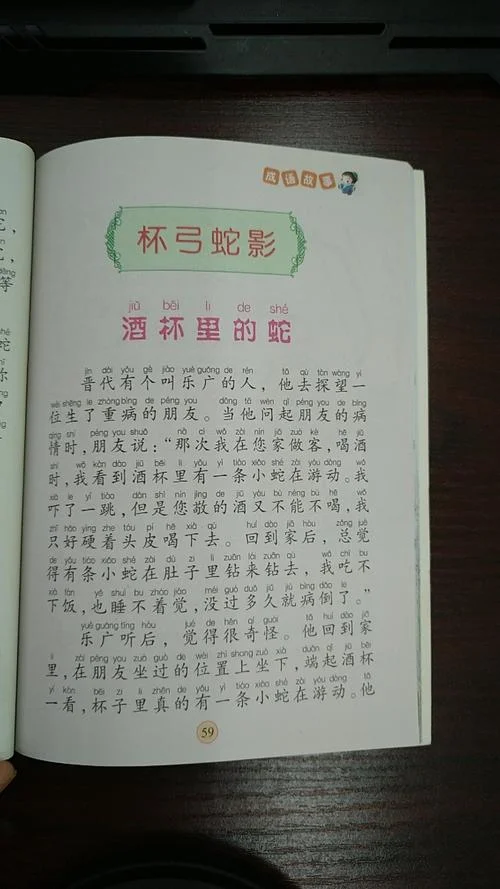 成语故事
杯弓蛇影
jiǔ bēi li de shé
酒杯里的蛇
jìn dài yǒu gè jiào yuè guǎng de rén tā qù tàn wàng yí
晋代有个叫乐广的人，他去探望一
wèi shēng le zhòng bìng de péng you dāng tā wèn qǐ péng you de bìng
位生了重病的朋友。当他问起朋友的病
qíng shí péng you shuō nà cì wǒ zài nín jiā zuò kè hē jiǔ
情时，朋友说：“那次我在您家做客，喝酒
shí wǒ kàn dào jiǔ bēi li yǒu yì tiáo xiǎo shé zài yóu dòng wǒ
时，我看到酒杯里有一条小蛇在游动。我
xià le yí tiào dàn shì nín jìng de jiǔ yòu bù néng bù hē wǒ
吓了一跳，但是您敬的酒又不能不喝，我
zhǐ hǎo yìng zhe tóu pí hē xià qù huí dào jiā hòu zǒng jué
只好硬着头皮喝下去。回到家后，总觉
de yǒu tiáo xiǎo shé zài dù zi li zuān lái zuān qù wǒ chī bu
得有条小蛇在肚子里钻来钻去，我吃不
xià fàn yě shuì bu zháo jiào méi guò duō jiǔ jiù bìng dǎo le
下饭，也睡不着觉，没过多久就病倒了。”
yuè guǎng tīng hòu jué de hěn qí guài tā huí dào jiā
乐广听后，觉得很奇怪。他回到家
li zài péng you zuò guò de wèi zhì shang zuò xià duān qǐ jiǔ bēi
里，在朋友坐过的位置上坐下，端起酒杯
yí kàn bēi zi li zhēn de yǒu yì tiáo xiǎo shé zài yóu dòng tā
一看，杯子里真的有一条小蛇在游动。他
59